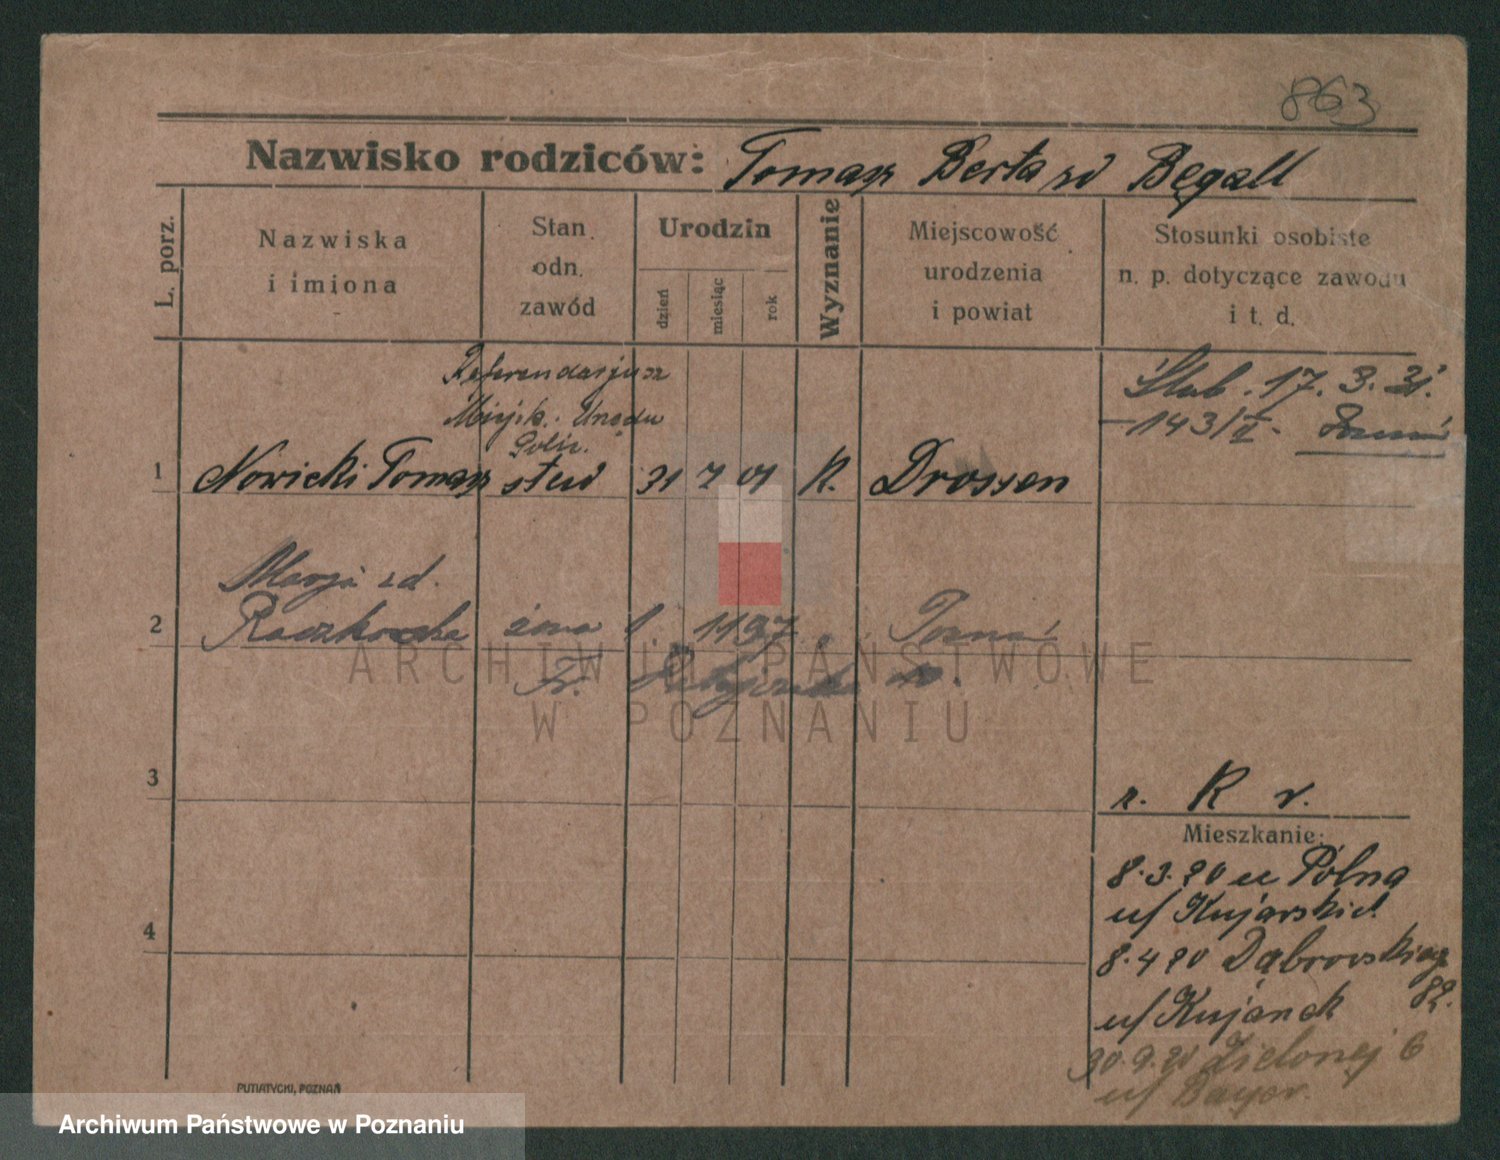 863
Nazwisko rodziców: Tomasz Berta zd Begall
L. porz.
Nazwiska
i imiona
Stan
odn.
zawód
Urodzin
dzień
miesiąc
rok
Wyznanie
Miejscowość
urodzenia
i powiat
Stosunki osobiste
n. p. dotyczące zawodu
i t. d.
Referendarjusz
Miejsk. Urzędu
Policz.
1 Nowicki Tomasz stud 31 7 01 K. Drossen
Ślub. 17. 3. 31.
143/II. Poznań
Marja zd.
2 Raczkowska żona 1 Poznań
3
4
r. K r.
Mieszkanie:
8.3.20 u Pólna
u/ Kujarski
8.4 20 Dąbrowskiego
82.
u/ Kujanek
30.9.20 Zielonej 6
u/ Bayer.
PUTIATYCKI, POZNAŃ
ARCHIWUM PAŃSTWOWE
W POZNANIU
Archiwum Państwowe w Poznaniu